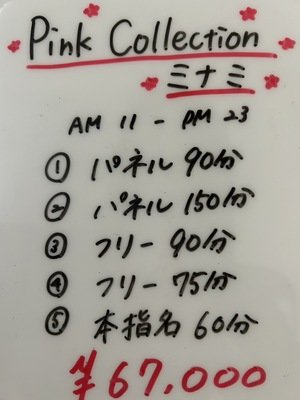 Pink Collection
ミナミ
AM 11 - PM 23
① パネル 90分
② パネル 150分
③ フリー 90分
④ フリー 75分
⑤ 本指名 60分
¥67,000